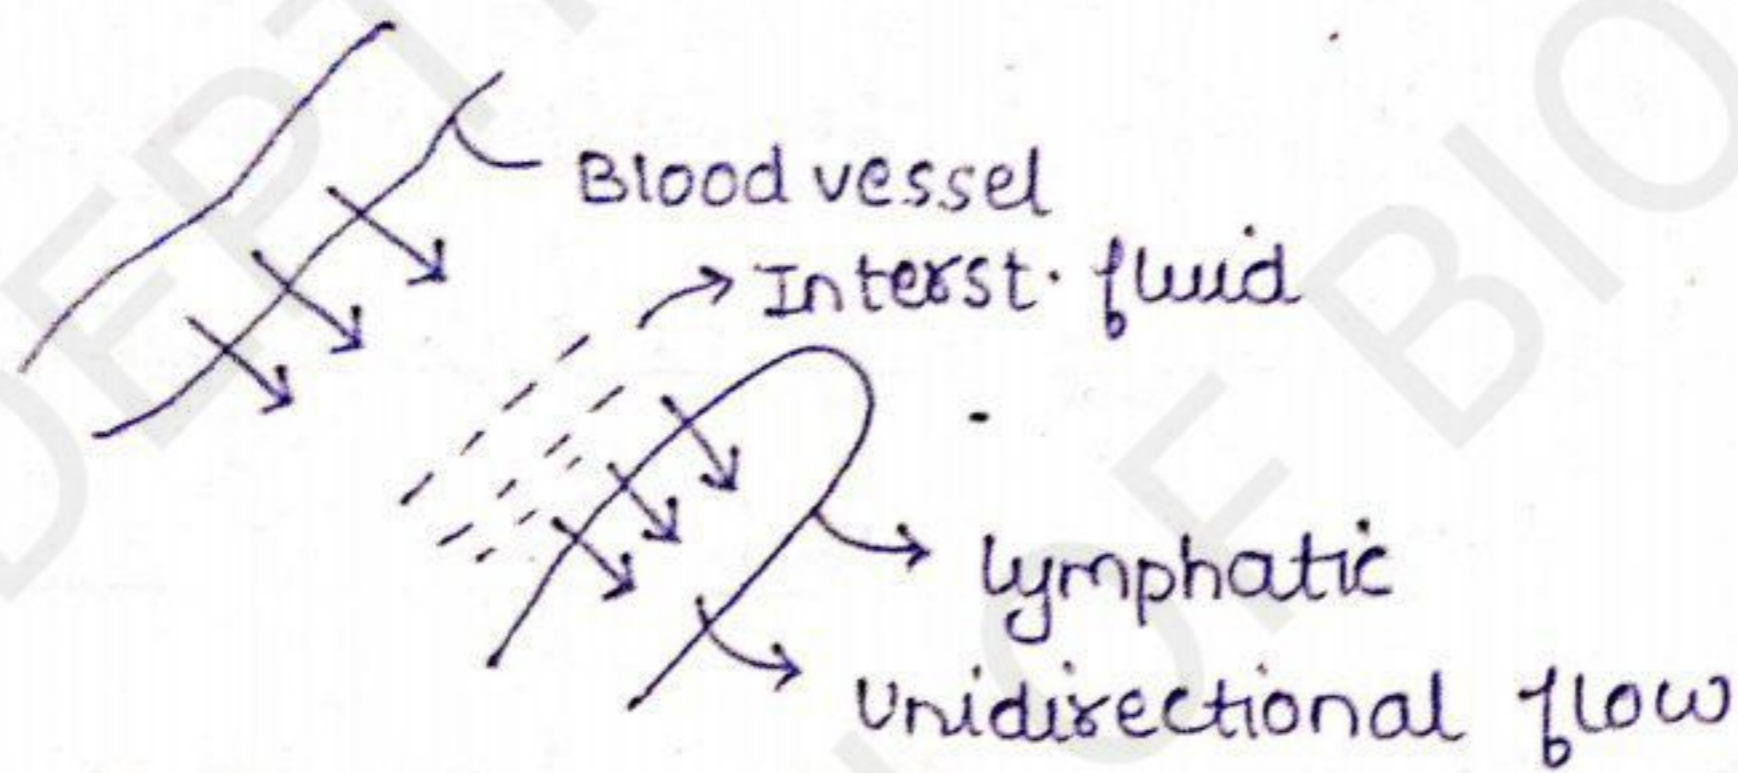 Blood vessel
Interst. fluid
lymphatic
Unidirectional flow
DEPT OF BIO